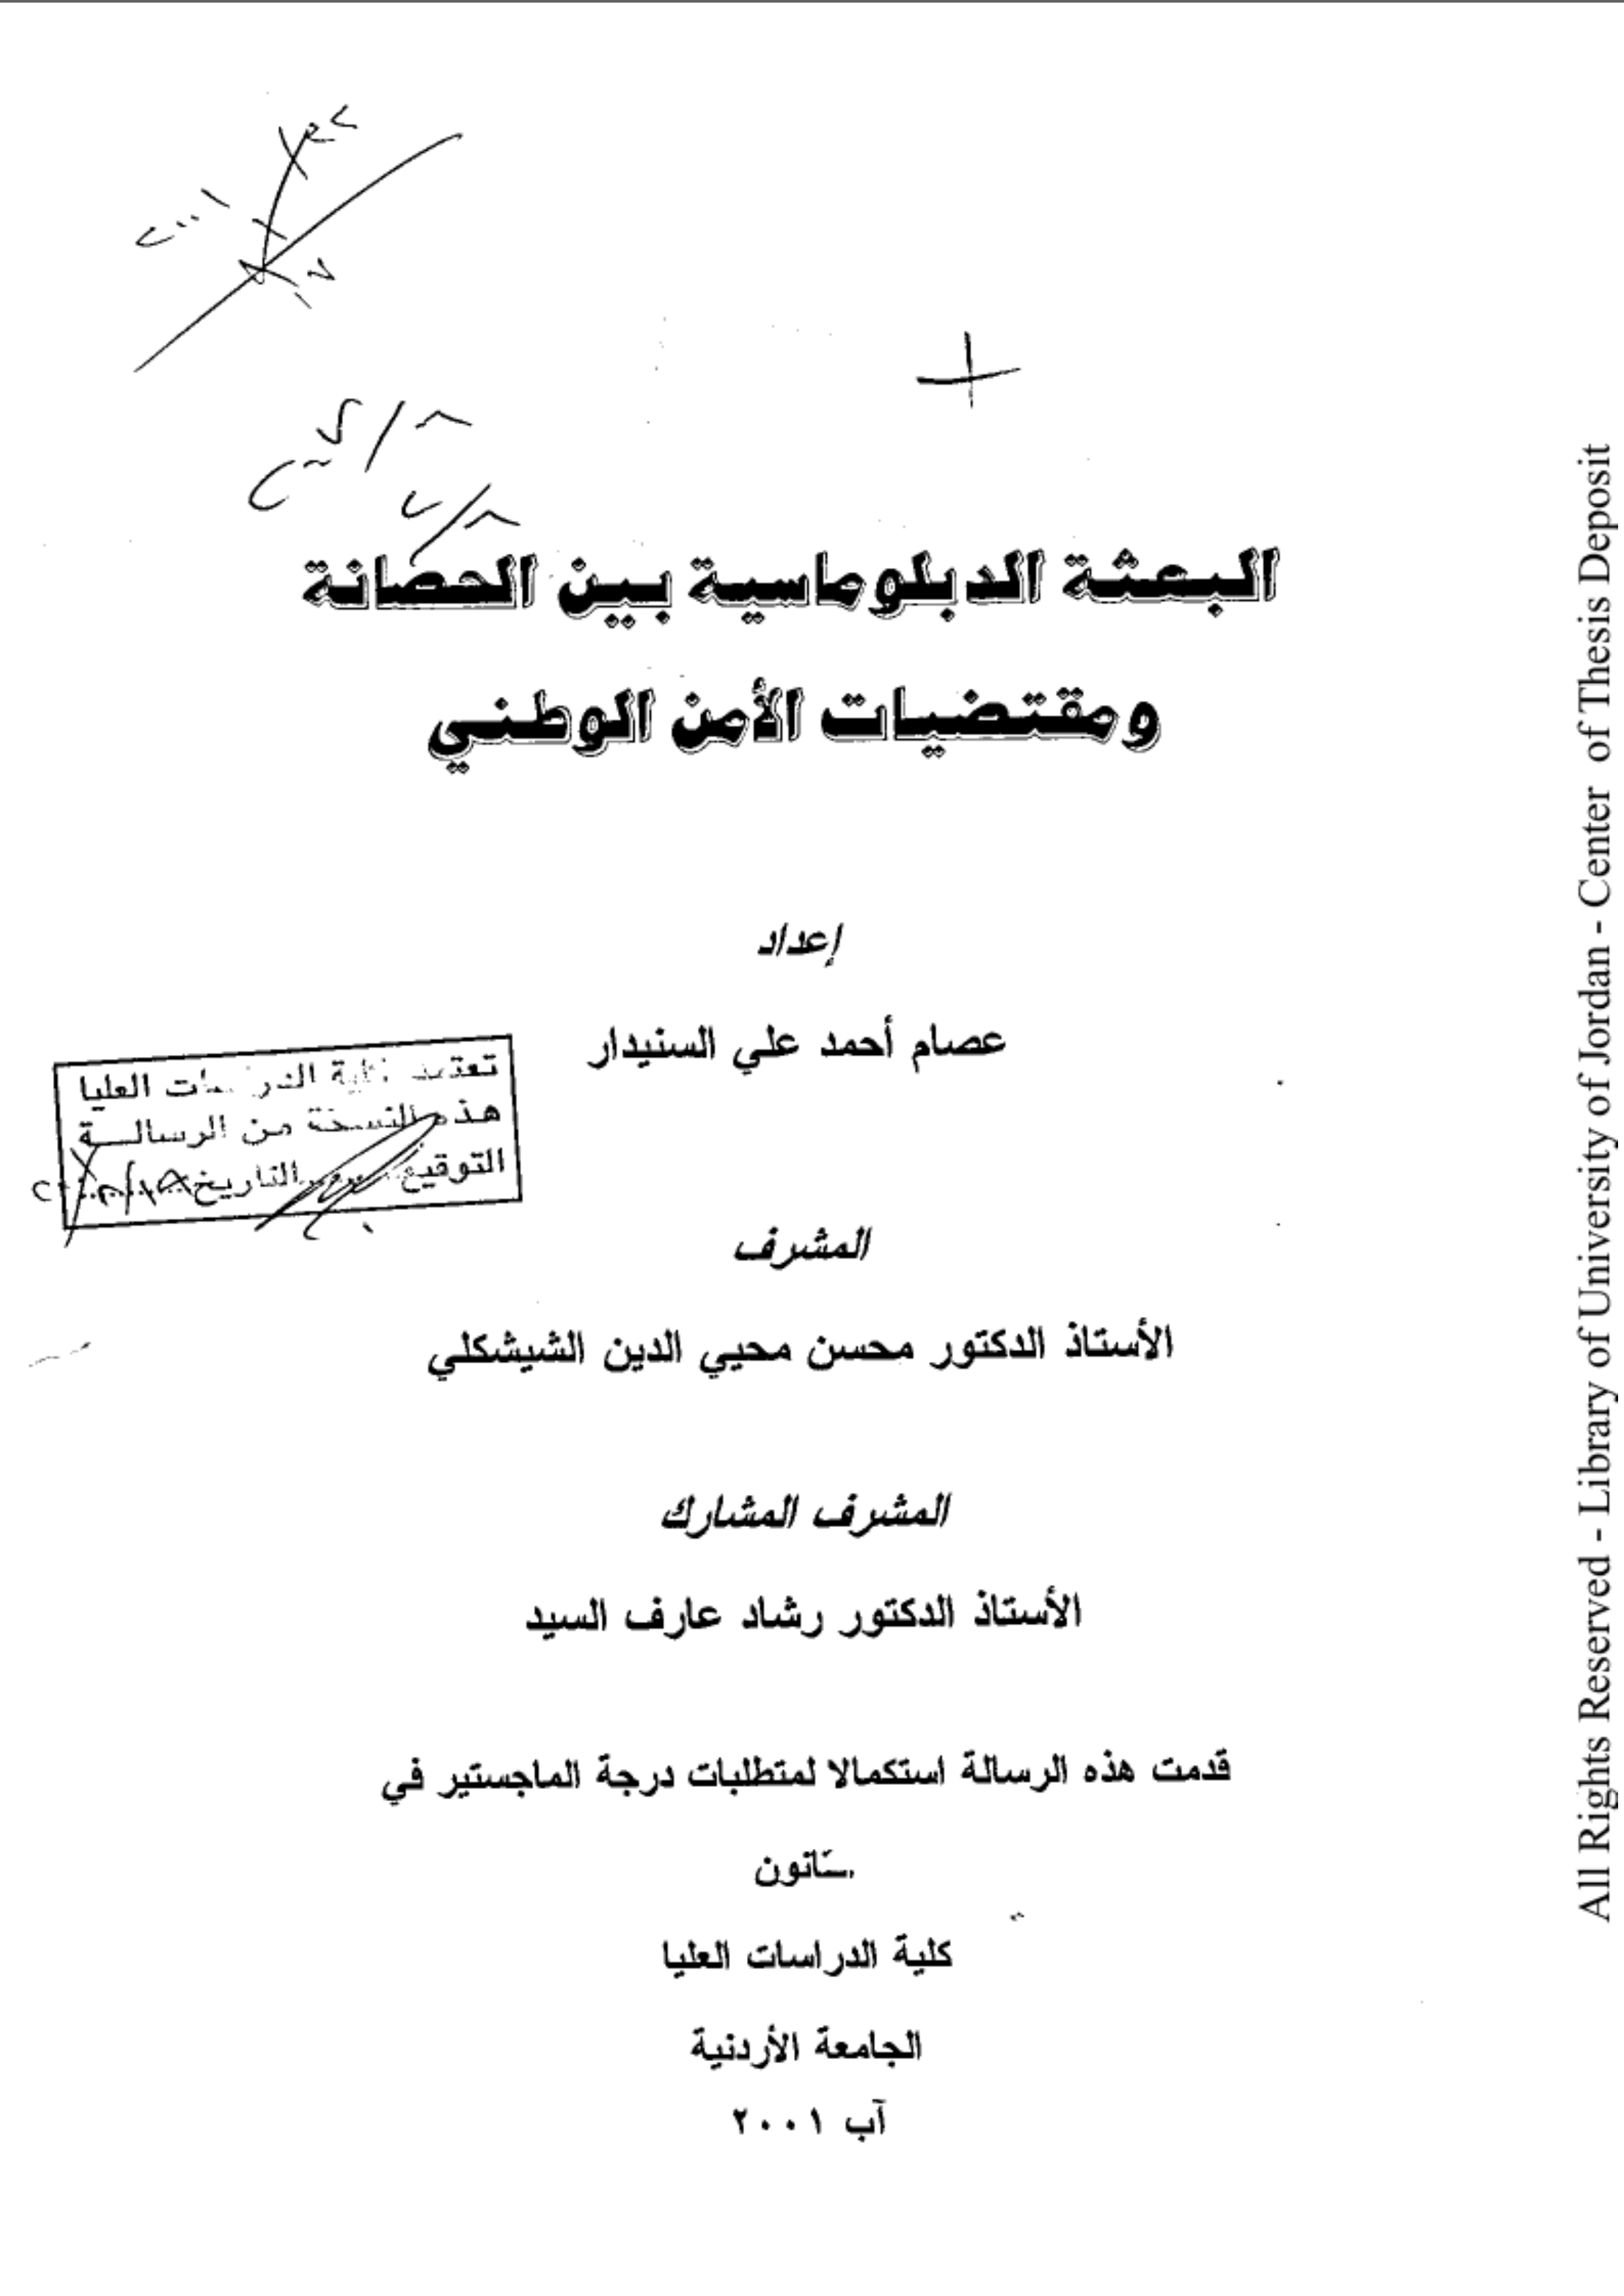 البعثة الدبلوماسية بين الحصانة
ومقتضيات الأمن الوطني
إعداد
عصام أحمد علي السنيدار
تعتمد كلية الدراسات العليا
هذه النسخة من الرسالـــة
التوقيع.........التاريخ
المشرف
الأستاذ الدكتور محسن محيي الدين الشيشكلي
المشرف المشارك
الأستاذ الدكتور رشاد عارف السيد
قدمت هذه الرسالة استكمالا لمتطلبات درجة الماجستير في
كلية الدراسات العليا
الجامعة الأردنية
آب ٢٠٠١
All Rights Reserved - Library of University of Jordan - Center of Thesis Deposit